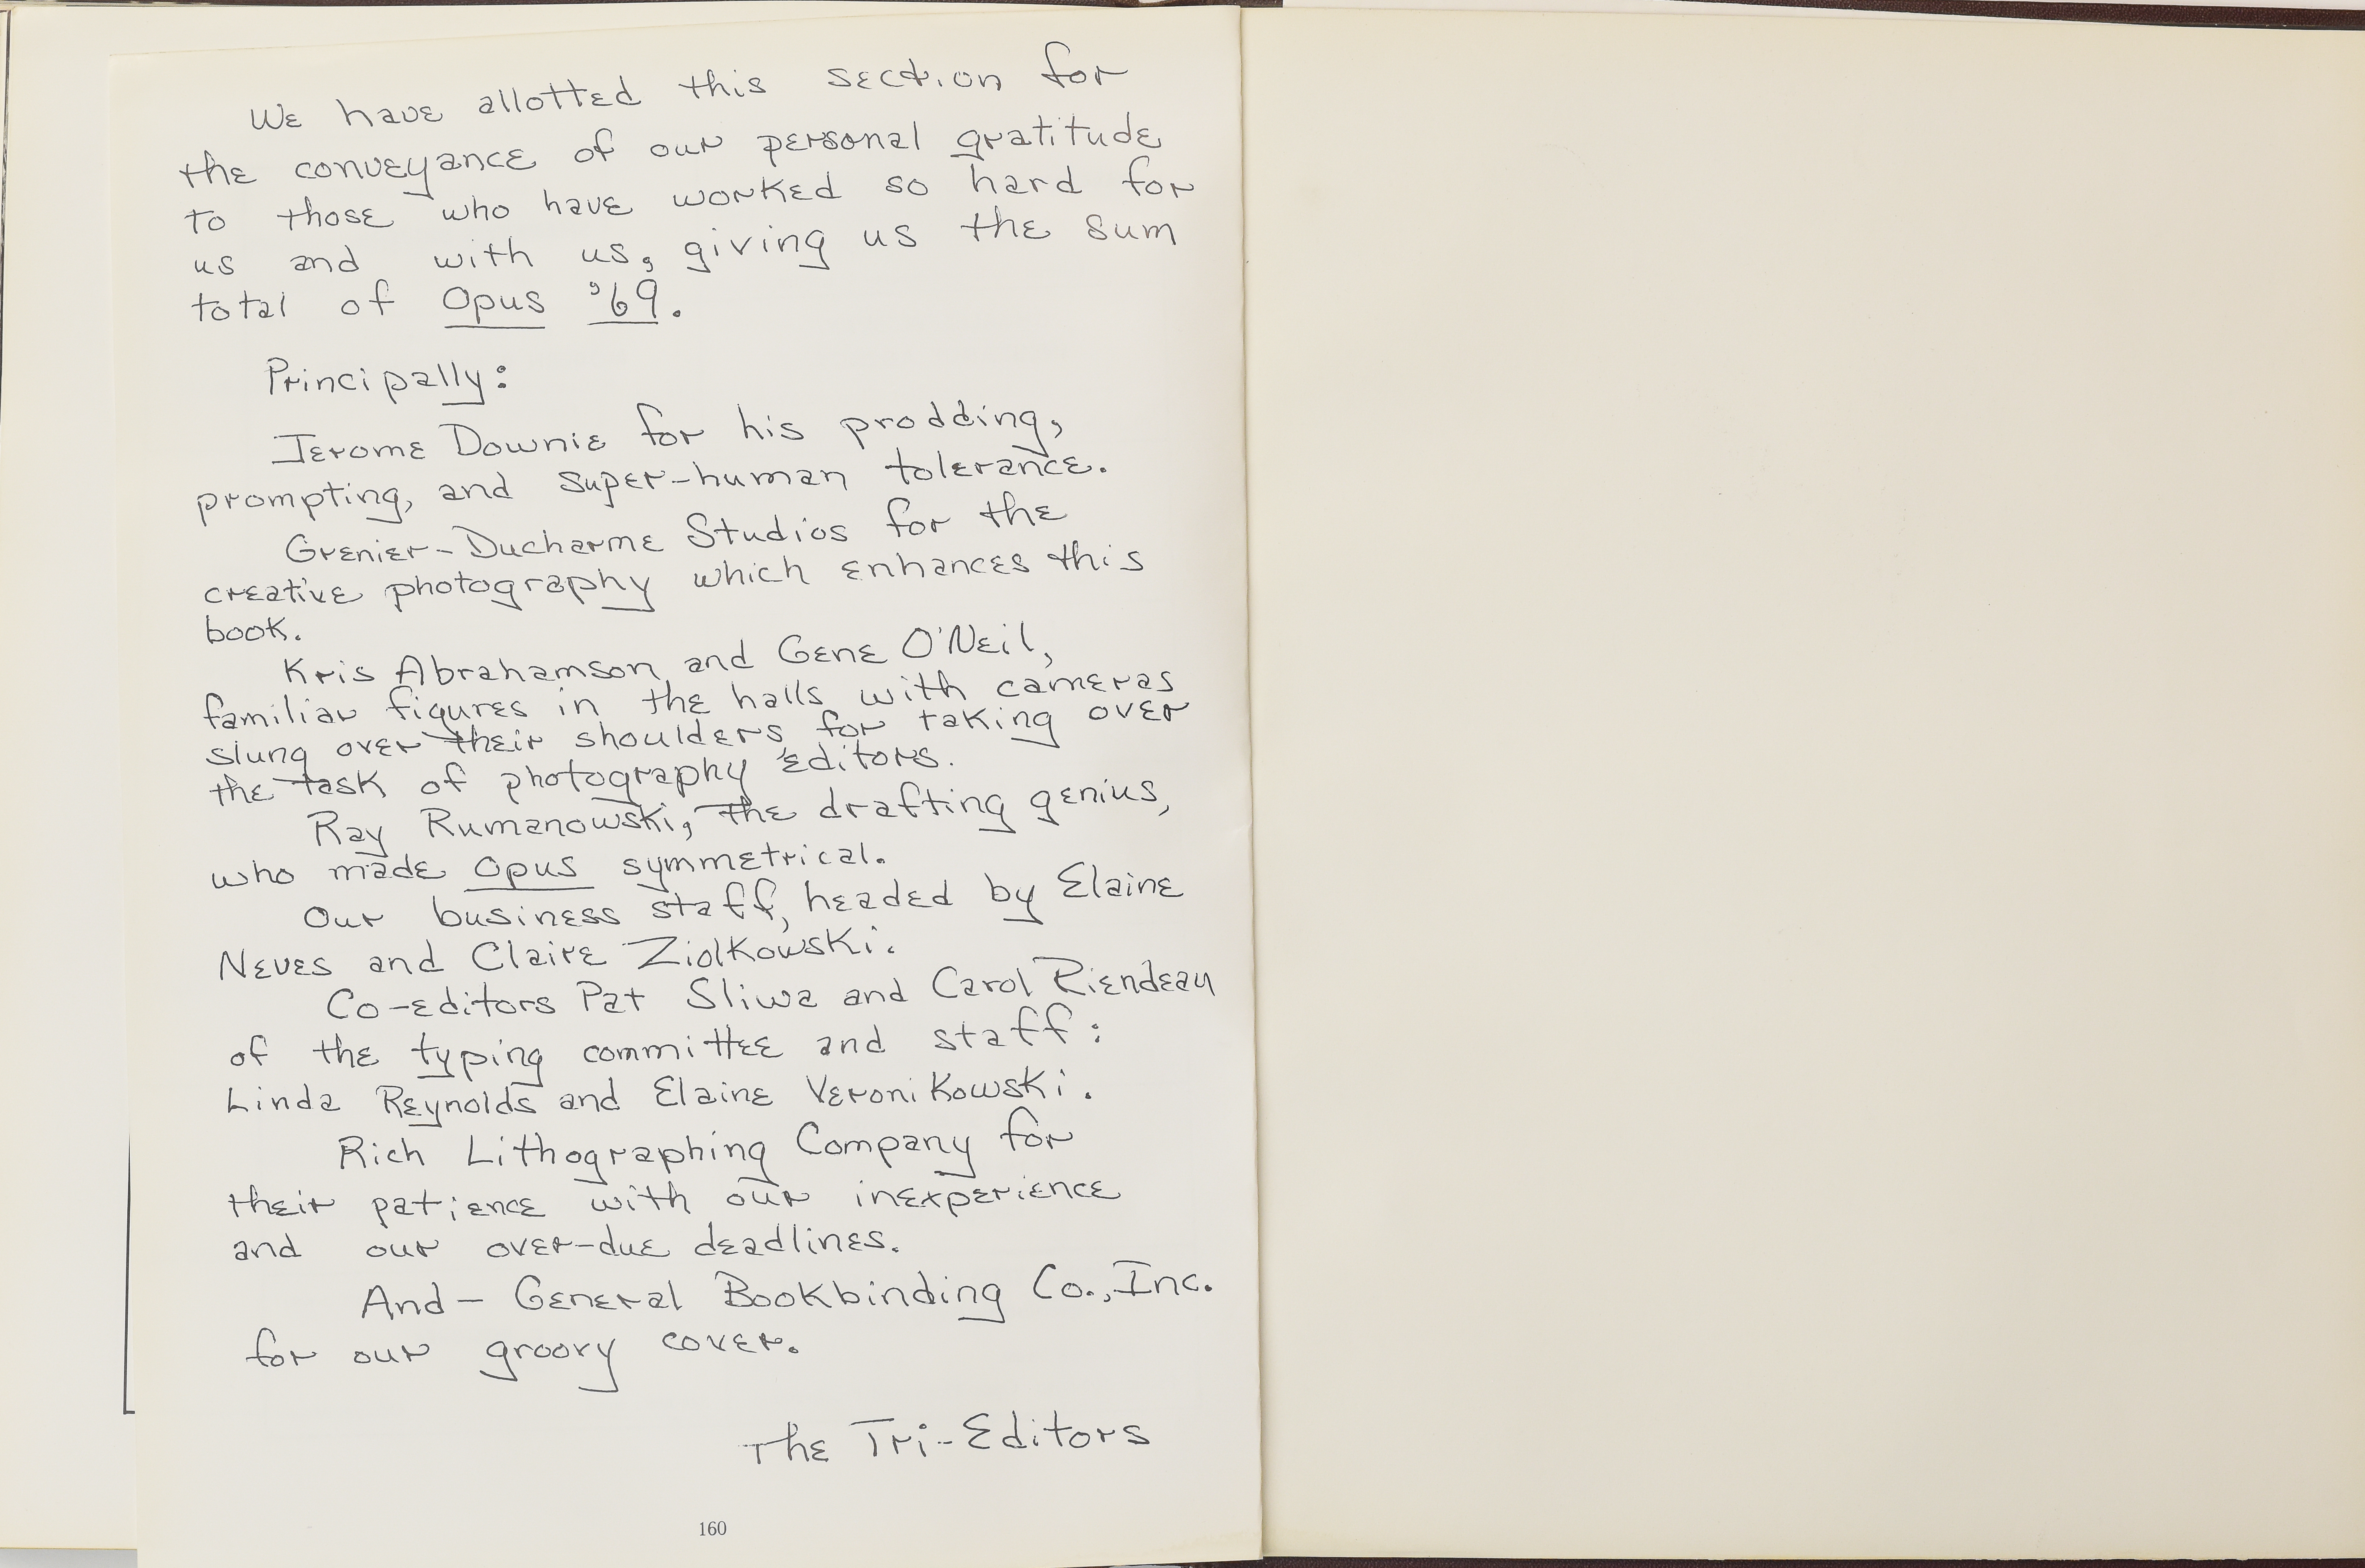 We have allotted this section for
the conveyance of our personal gratitude
to those who have worked so hard for
us and with us, giving us the sum
total of Opus '69.
Principally:
Jerome Downie for his prodding,
prompting, and super-human tolerance.
Grenier-Ducharme Studios for the
creative photography which enhances this
book.
Kris Abrahamson and Gene O'Neil,
familiar figures in the halls with cameras
slung over their shoulders for taking over
the task of photography editors.
Ray Rumanowski, the drafting genius,
who made Opus symmetrical.
Our business staff, headed by Elaine
Neves and Claire Ziolkowski.
Co-editors Pat Sliwa and Carol Riendeau
of the typing committee and staff:
Linda Reynolds and Elaine Veronikowski.
Rich Lithographing Company for
their patience with our inexperience
and our over-due deadlines.
And - General Bookbinding Co., Inc.
for our groovy cover.
The Tri-Editors
160